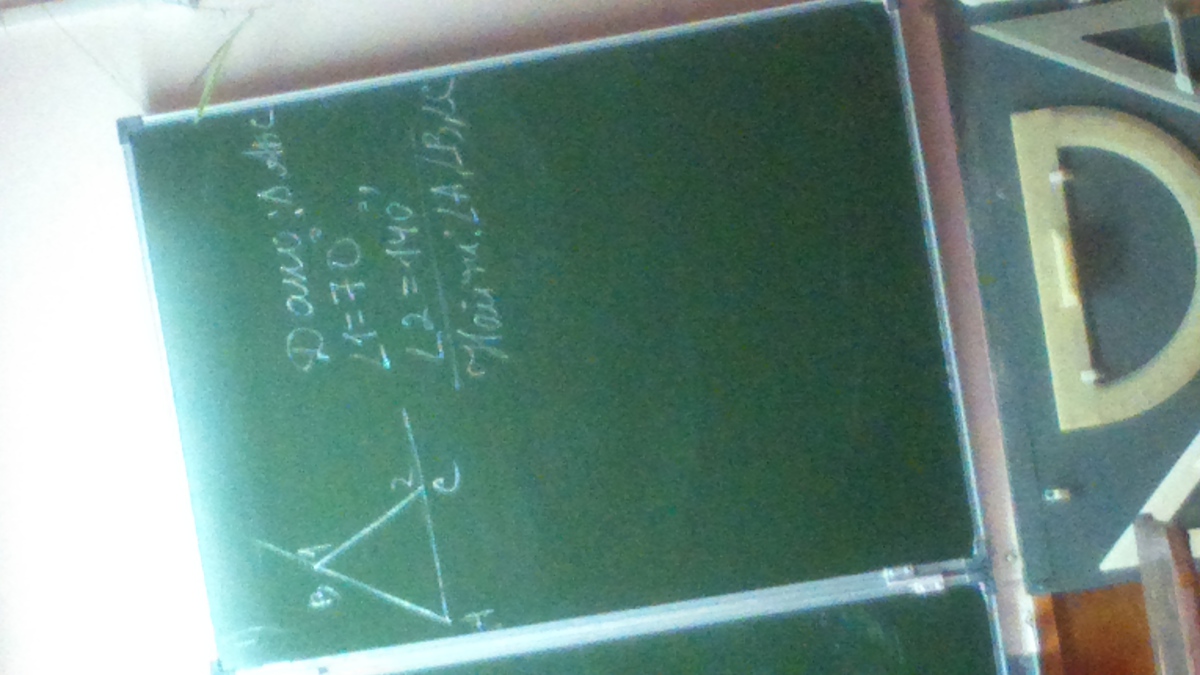 Дано: Δ ABC
∠1=70°
∠2=140°
Найти: ∠A, ∠B, ∠C
B
1
2
A
C